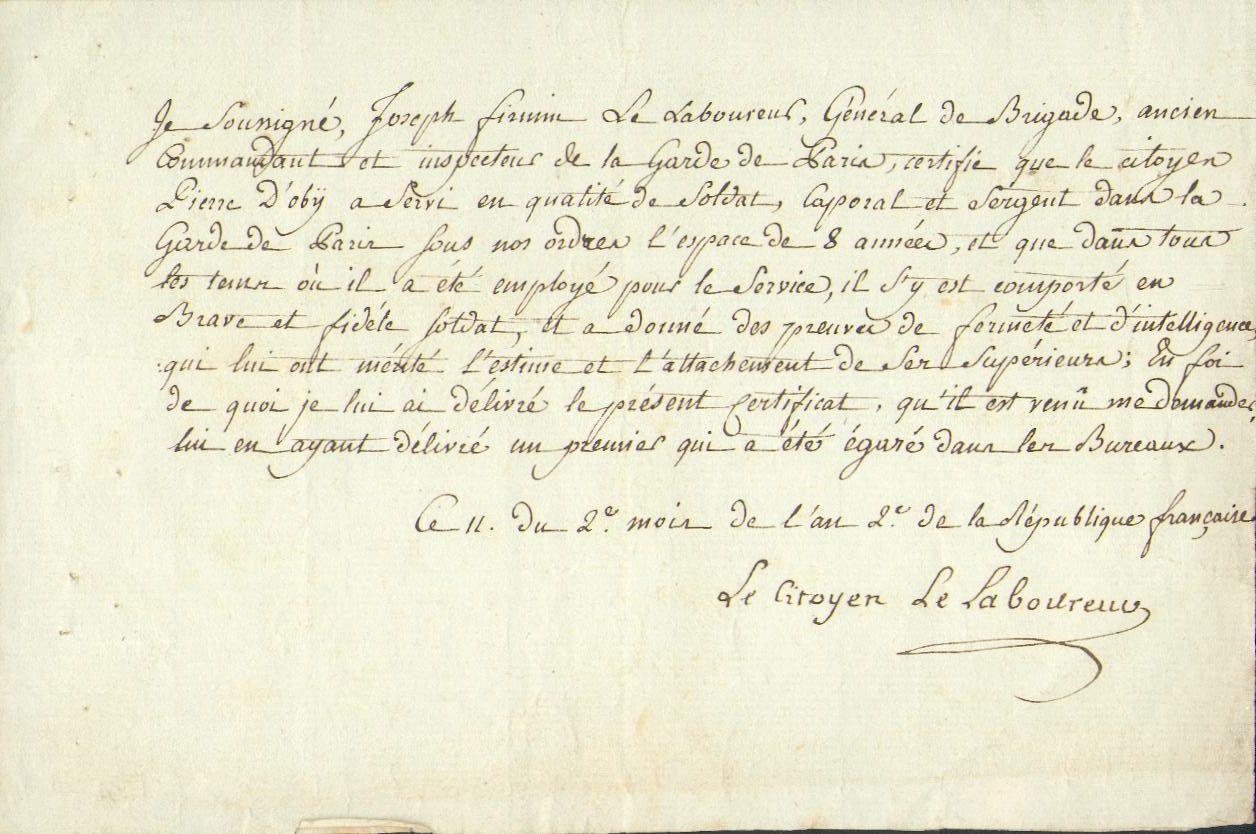 Je Soussigné, Joseph firmin Le Laboureur, Général de Brigade, ancien
Commandant et inspecteur de la Garde de Paris, certifie que le citoyen
Pierre D'obÿ a Servi en qualité de Soldat, Caporal et Sergent dans la
Garde de Paris sous nos ordres l'espace de 8 années, et que dans tous
les tems où il a été employé pour le Service, il s'y est comporté en
Brave et fidéle soldat, et a donné des preuves de fermeté et d'intelligence,
qui lui ont mérité l'estime et l'attachement de Ses Supérieurs; En foi
de quoi je lui ai délivré le présent Certificat, qu'il est venû me demander,
lui en ayant délivré un premier qui a été égaré dans les Bureaux.
Ce 11. du 2.e mois de l'an 2.e de la République française
Le Citoyen Le Laboureur